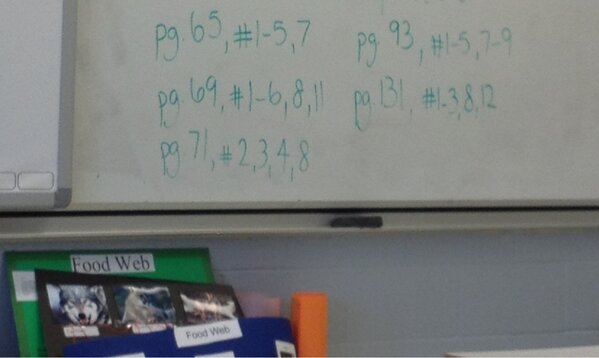 pg. 65, #1-5, 7
pg. 69, #1-6, 8, 11
pg. 71, # 2, 3, 4, 8
pg. 93, #1-5, 7-9
pg. 131, #1-3, 8, 12
Food Web
Food Web